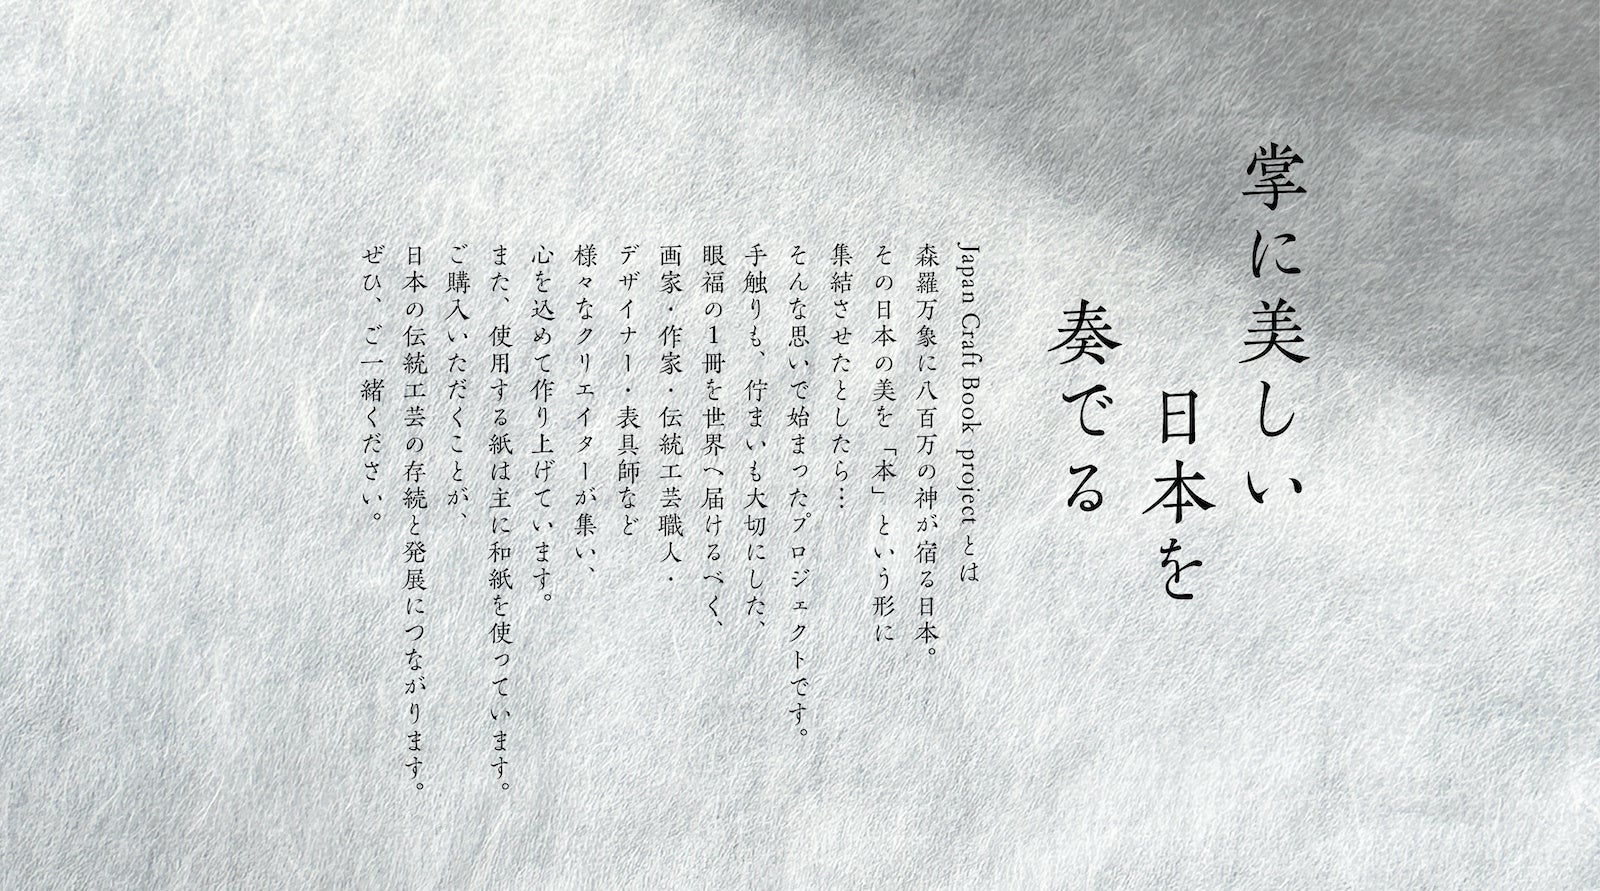 掌に美しい
日本を
奏でる
Japan Craft Book projectとは
森羅万象に八百万の神が宿る日本。
その日本の美を「本」という形に
集結させたとしたら…
そんな思いで始まったプロジェクトです。
手触りも、佇まいも大切にした、
眼福の1冊を世界へ届けるべく、
画家・作家・伝統工芸職人・
デザイナー・表具師など
様々なクリエイターが集い、
心を込めて作り上げています。
また、使用する紙は主に和紙を使っています。
ご購入いただくことが、
日本の伝統工芸の存続と発展につながります。
ぜひ、ご一緒ください。